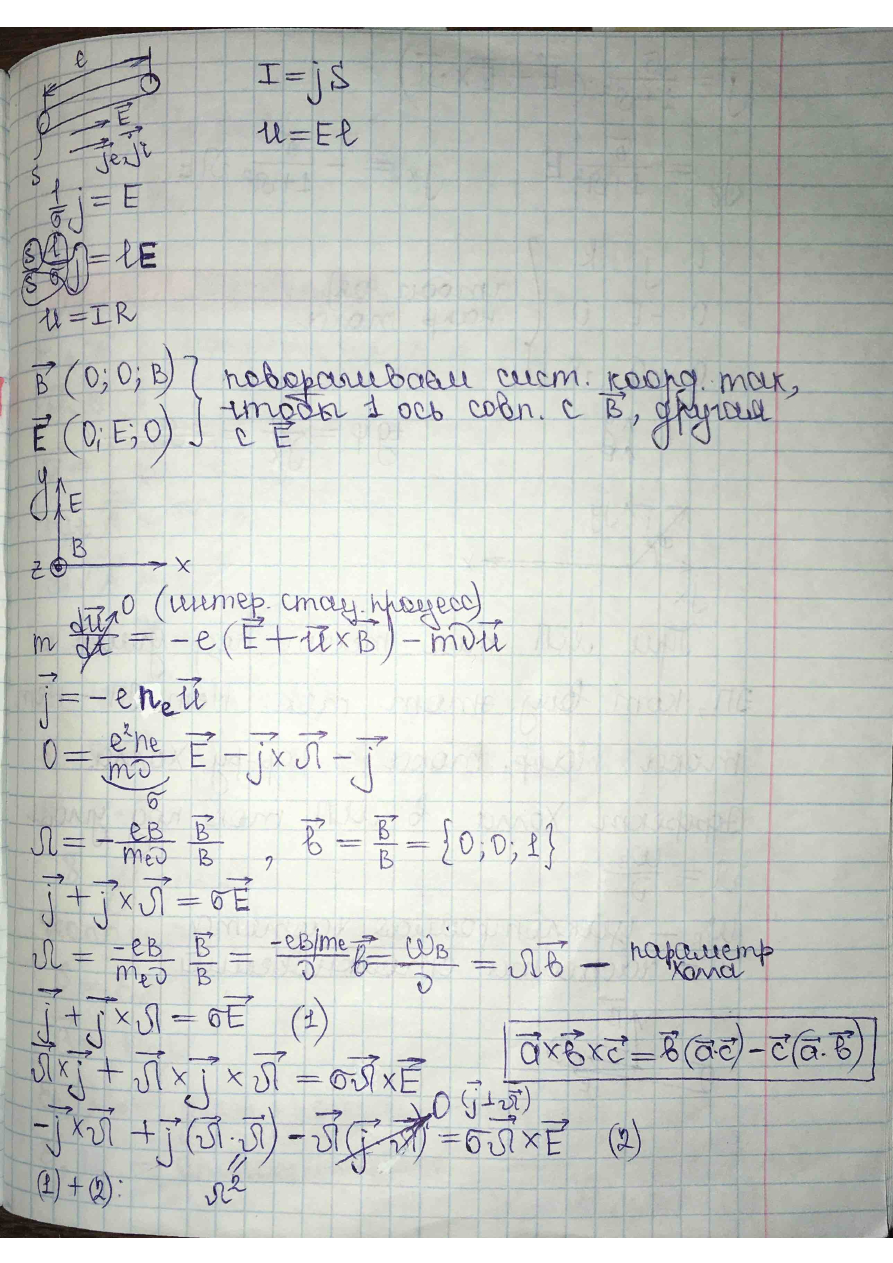 ℓ
E⃗
j⃗e, j⃗i
S
I = jS
U = Eℓ
1/σ j = E
(S/S) (ℓ/σ) j = ℓE
U = IR
B⃗ (0; 0; B) } поворачиваем сист. коорд. так,
E⃗ (0; E; 0) } чтобы 1 ось совп. с B⃗, другая
с E⃗
y E
B
z x
0 (интер. стац. процесс)
m du⃗/dt = -e(E⃗ + u⃗ × B⃗) - mνu⃗
j⃗ = -e nₑ u⃗
0 = e²nₑ/mν E⃗ - j⃗ × Ω⃗ - j⃗
σ
Ω = - eB/mₑν B⃗/B , b⃗ = B⃗/B = {0; 0; 1}
j⃗ + j⃗ × Ω⃗ = σE⃗
Ω = -eB/mₑν B⃗/B = (-eB/mₑ)/ν b⃗ = ω_B/ν = Ωb⃗ — параметр
Хола
j⃗ + j⃗ × Ω = σE⃗ (1)
a⃗ × b⃗ × c⃗ = b⃗(a⃗·c⃗) - c⃗(a⃗·b⃗)
Ω⃗ × j⃗ + Ω⃗ × j⃗ × Ω⃗ = σΩ⃗ × E⃗
0 (j⃗ ⊥ Ω⃗)
-j⃗ × Ω⃗ + j⃗(Ω⃗·Ω⃗) - Ω⃗(j⃗·Ω⃗) = σΩ⃗ × E⃗ (2)
(1) + (2): Ω²